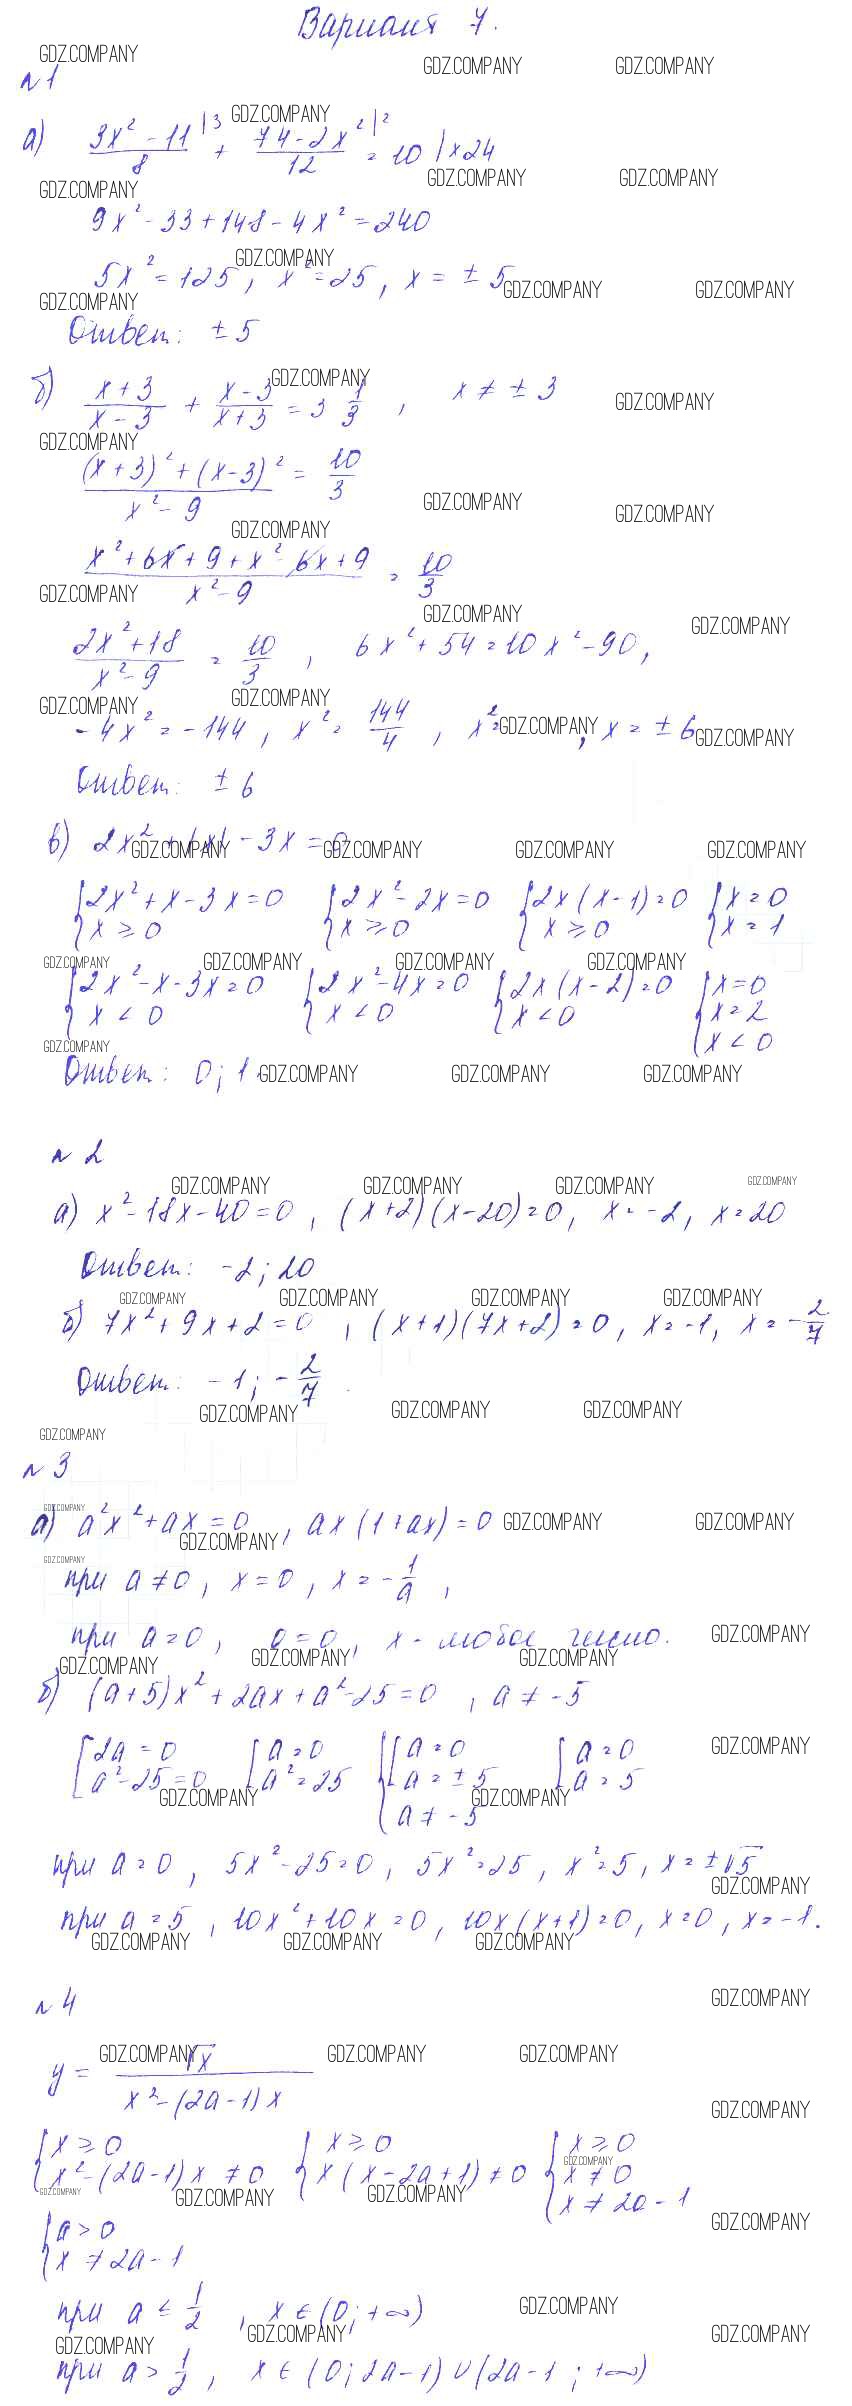 Вариант 7.
№1
а) (3x² - 11)/8 |³ + (74 - 2x²)/12 |² = 10 | × 24
9x² - 33 + 148 - 4x² = 240
5x² = 125, x² = 25, x = ± 5
Ответ: ± 5
б) (x + 3)/(x - 3) + (x - 3)/(x + 3) = 3 1/3, x ≠ ± 3
((x + 3)² + (x - 3)²)/(x² - 9) = 10/3
(x² + 6x + 9 + x² - 6x + 9)/(x² - 9) = 10/3
(2x² + 18)/(x² - 9) = 10/3, 6x² + 54 = 10x² - 90,
- 4x² = - 144, x² = 144/4, x² = , x = ± 6
Ответ: ± 6
в) 2x² + |x| - 3x = 0
{2x² + x - 3x = 0 {2x² - 2x = 0 {2x(x - 1) = 0 {x = 0
x ≥ 0 x ≥ 0 x ≥ 0 x = 1
{2x² - x - 3x = 0 {2x² - 4x = 0 {2x(x - 2) = 0 {x = 0
x < 0 x < 0 x < 0 x = 2
x < 0
Ответ: 0; 1
№ 2
а) x² - 18x - 40 = 0, (x + 2)(x - 20) = 0, x = -2, x = 20
Ответ: -2; 20
б) 7x² + 9x + 2 = 0, (x + 1)(7x + 2) = 0, x = -1, x = - 2/7
Ответ: -1; - 2/7
№ 3
а) a²x² + ax = 0, ax(1 + ax) = 0
при a ≠ 0, x = 0, x = - 1/a,
при a = 0, 0 = 0, x - любое число.
б) (a + 5)x² + 2ax + a² - 25 = 0, a ≠ -5
[2a = 0 [a = 0 {[a = 0 [a = 0
a² - 25 = 0 a² = 25 a = ± 5 a = 5
a ≠ -5
при a = 0, 5x² - 25 = 0, 5x² = 25, x² = 5, x = ±√5
при a = 5, 10x² + 10x = 0, 10x(x + 1) = 0, x = 0, x = -1.
№ 4
y = √x/(x² - (2a - 1)x)
{x ≥ 0 {x ≥ 0 {x ≥ 0
x² - (2a - 1)x ≠ 0 x(x - 2a + 1) ≠ 0 x ≠ 0
x ≠ 2a - 1
{a > 0
x ≠ 2a - 1
при a ≤ 1/2, x ∈ (0; +∞)
при a > 1/2, x ∈ (0; 2a - 1) ∪ (2a - 1; +∞)
GDZ.COMPANY